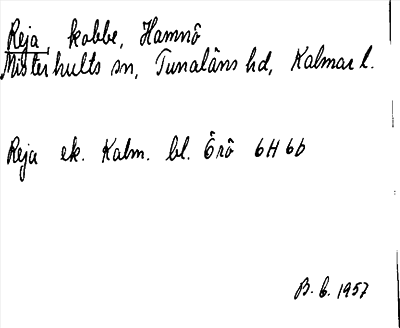 Reja, kobbe, Hamnö
Misterhults sn, Tunaläns hd, Kalmar l.
Reja ek. Kalm. bl. Örö 6H6b
B. G. 1957